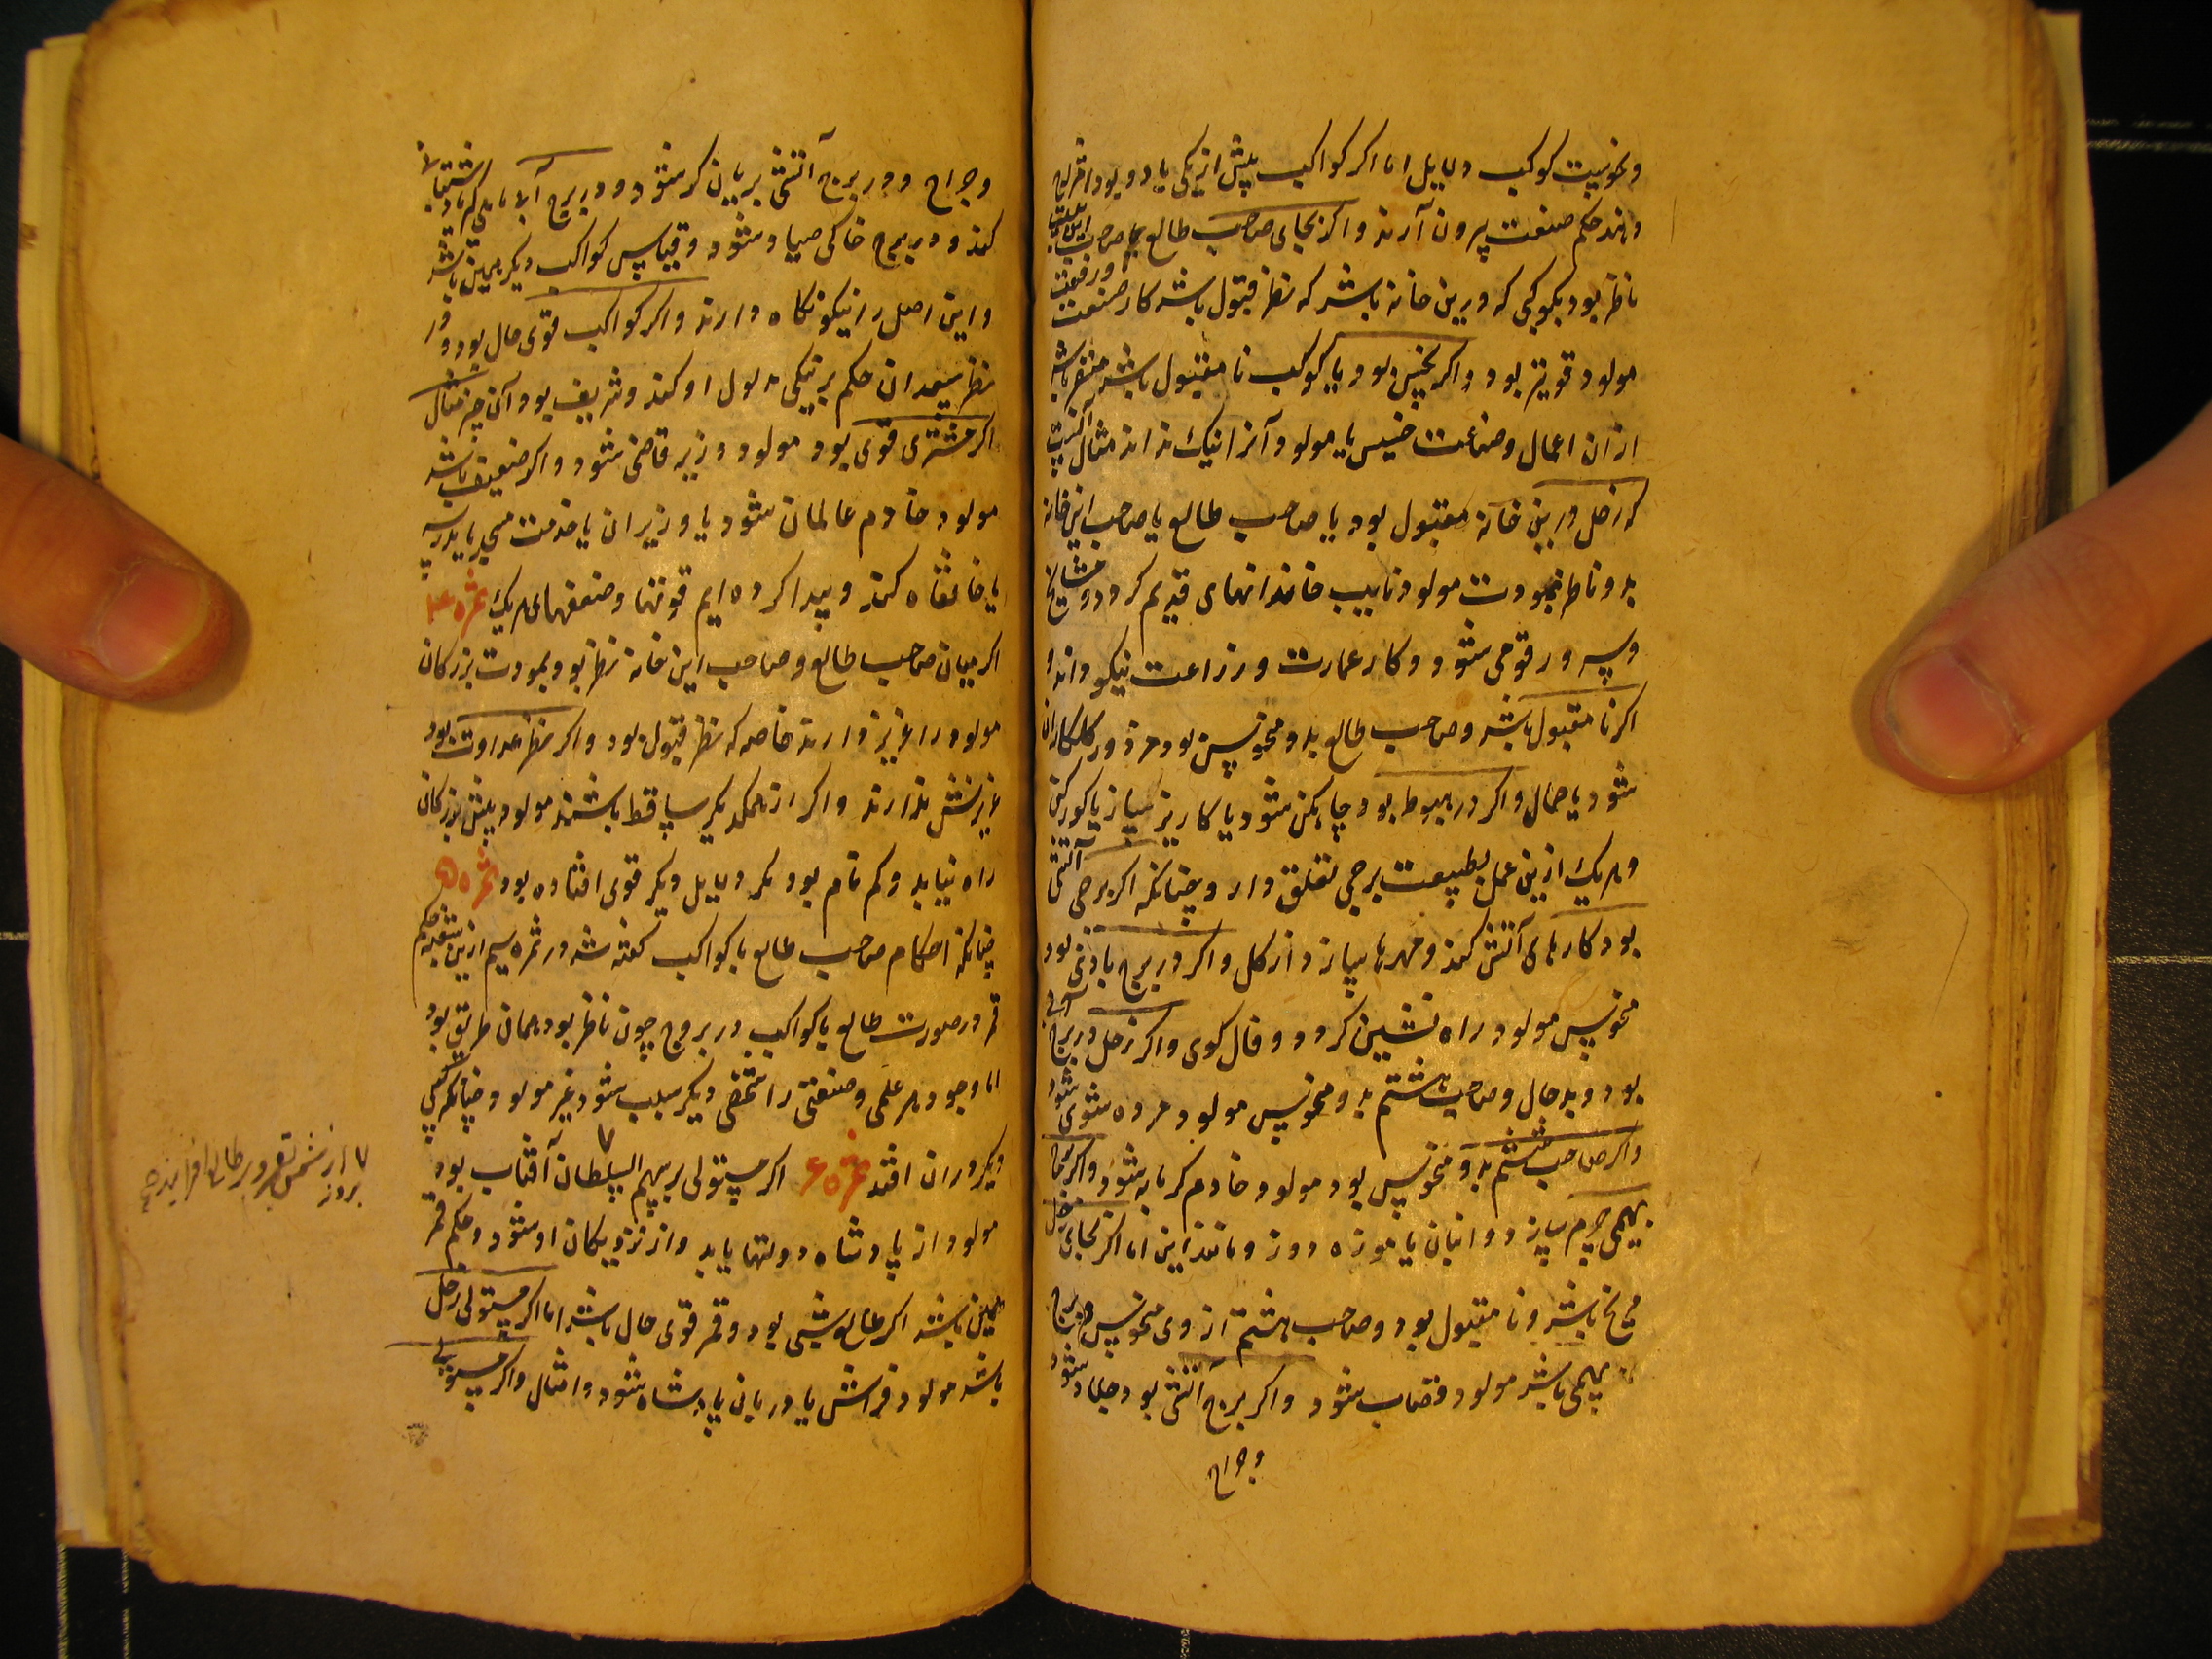 و نحوست کوکب دلایل اما اگر کواکب بیش از یکی یا دو بود امتزاج
دهند حکم صنعت بیرون آرند و اگر بجای صاحب طالع یا صاحب این بیت
ناظر بود بکوکبی که درین خانه باشد که نظر قبول باشد کار صنعت و رفعت
مولود قویتر بود و اگر نحس بود یا کوکب نا مقبول باشد متنفر باشد
از ان اعمال و صناعت خسیس یا مولود آنرا نیک نداند مثال آنست
که زحل درین خانه مقبول بود یا صاحب طالع یا صاحب این خانه
بدو ناظر بمودت مولود نایب خاندانهای قدیم گردد و مشایخ
و پیه ور قومی شود و کار عمارت و زراعت نیکو داند و
اگر نا مقبول باشد و صاحب طالع بدو منحوس بود مزدور کلکاران
شود یا حمال و اگر در هبوط بود چاه کن شود یا کاریز ساز یا گورکن
و هر یک ازین عمل بطبیعت برجی تعلق دارد چنانکه اگر برجی آتشی
بود کارهای آتش کند و مهرها سازد از کل و اگر در برج بادی بود
منحوس مولود راه نشین گردد و فال کوی و اگر زحل در برج آبی
بود و بدحال و صاحب هشتم بدو منحوس مولود مرده شوی شود
و اگر صاحب ششم بدو منحوس بود مولود خادم گرمابه شود و اگر برج
بهیمی چرم سازد و انبان یا موزه دوزد و مانند این اما اگر بجای زحل
مریخ باشد و نا مقبول بود و صاحب هشتم از وی منحوس و در برج
بهیمی باشد مولود قصاب شود و اگر برج آتشی بود جلاد شود
و جراح
و جراح و در برج آتشی بریان گر شود و در برج آبی
کند و در برج خاکی صیاد شود و قیاس کواکب دیگر همین باشد
و این اصل را نیکو نگاه دارند و اگر کواکب قوی حال بود و در
نظر سعدان حکم بر نیکی مدلول او کند و شریف بود آن چیز مثال
اگر مشتری قوی بود مولود وزیر قاضی شود و اگر ضعیف باشد
مولود خادم عالمان شود یا وزیران یا خدمت مسجد یا مدرسه
یا خانقاه کند و پیدا کرده ایم قوتها و ضعفهای هر یک ثمره ۴
اگر میان صاحب طالع و صاحب این خانه نظر بود بمودت بزرگان
مولود را عزیز دارند خاصه که نظر قبول بود و اگر نظر عداوت بود
عزیزش ندارند و اگر از همدیگر ساقط باشند مولود پیش بزرگان
راه نیابد و کم نام بود مگر دلایل دیگر قوی افتاده بود ثمره ۵
چنانکه احکام صاحب طالع با کواکب گفته شد در ثمره سیم ازین شعبه حکم
قمر در صورت طالع با کواکب در بروج چون ناظر بود همان طریق بود
اما وجود هر علمی و صنعتی را شخصی دیگر سبب شود غیر مولود چنانکه کسی
دیگر در ان افتد ثمره ۶ اگر مستولی بر سهم السلطان آفتاب بود
مولود از پادشاه دولتها یابد و از نزدیکان او شود و حکم قمر
همین باشد اگر طالع شبی بود و قمر قوی حال باشد اما اگر مستولی زحل
باشد مولود فراش یا دربانی پادشاه شود و امثال و اگر مستولی
۷ از شمس بقمر و بر طالع افزایند
بروز